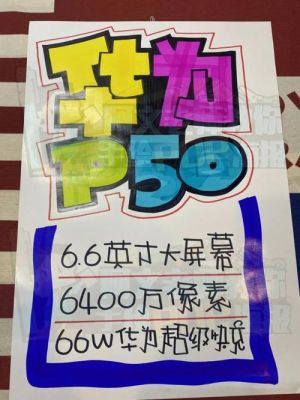 华为
P50
6.6英寸大屏幕
6400万像素
66W华为超级快充